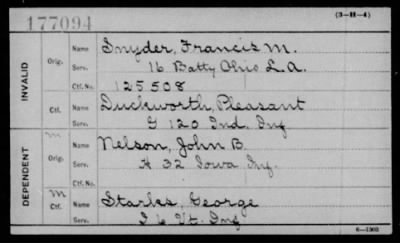 177094
(3-H-4)
INVALID
Orig.
Name Snyder, Francis M.
Serv. 16 Batty Ohio L.A.
Ctf. No. 125508
Ctf.
Name Duckworth, Pleasant
Serv. G 120 Ind. Inf
DEPENDENT
M
Orig.
Name Nelson, John B.
Serv. H 32 Iowa Inf.
Ctf. No.
M
Ctf.
Name Starks, George
Serv. I 6 Vt. Inf
6-1303